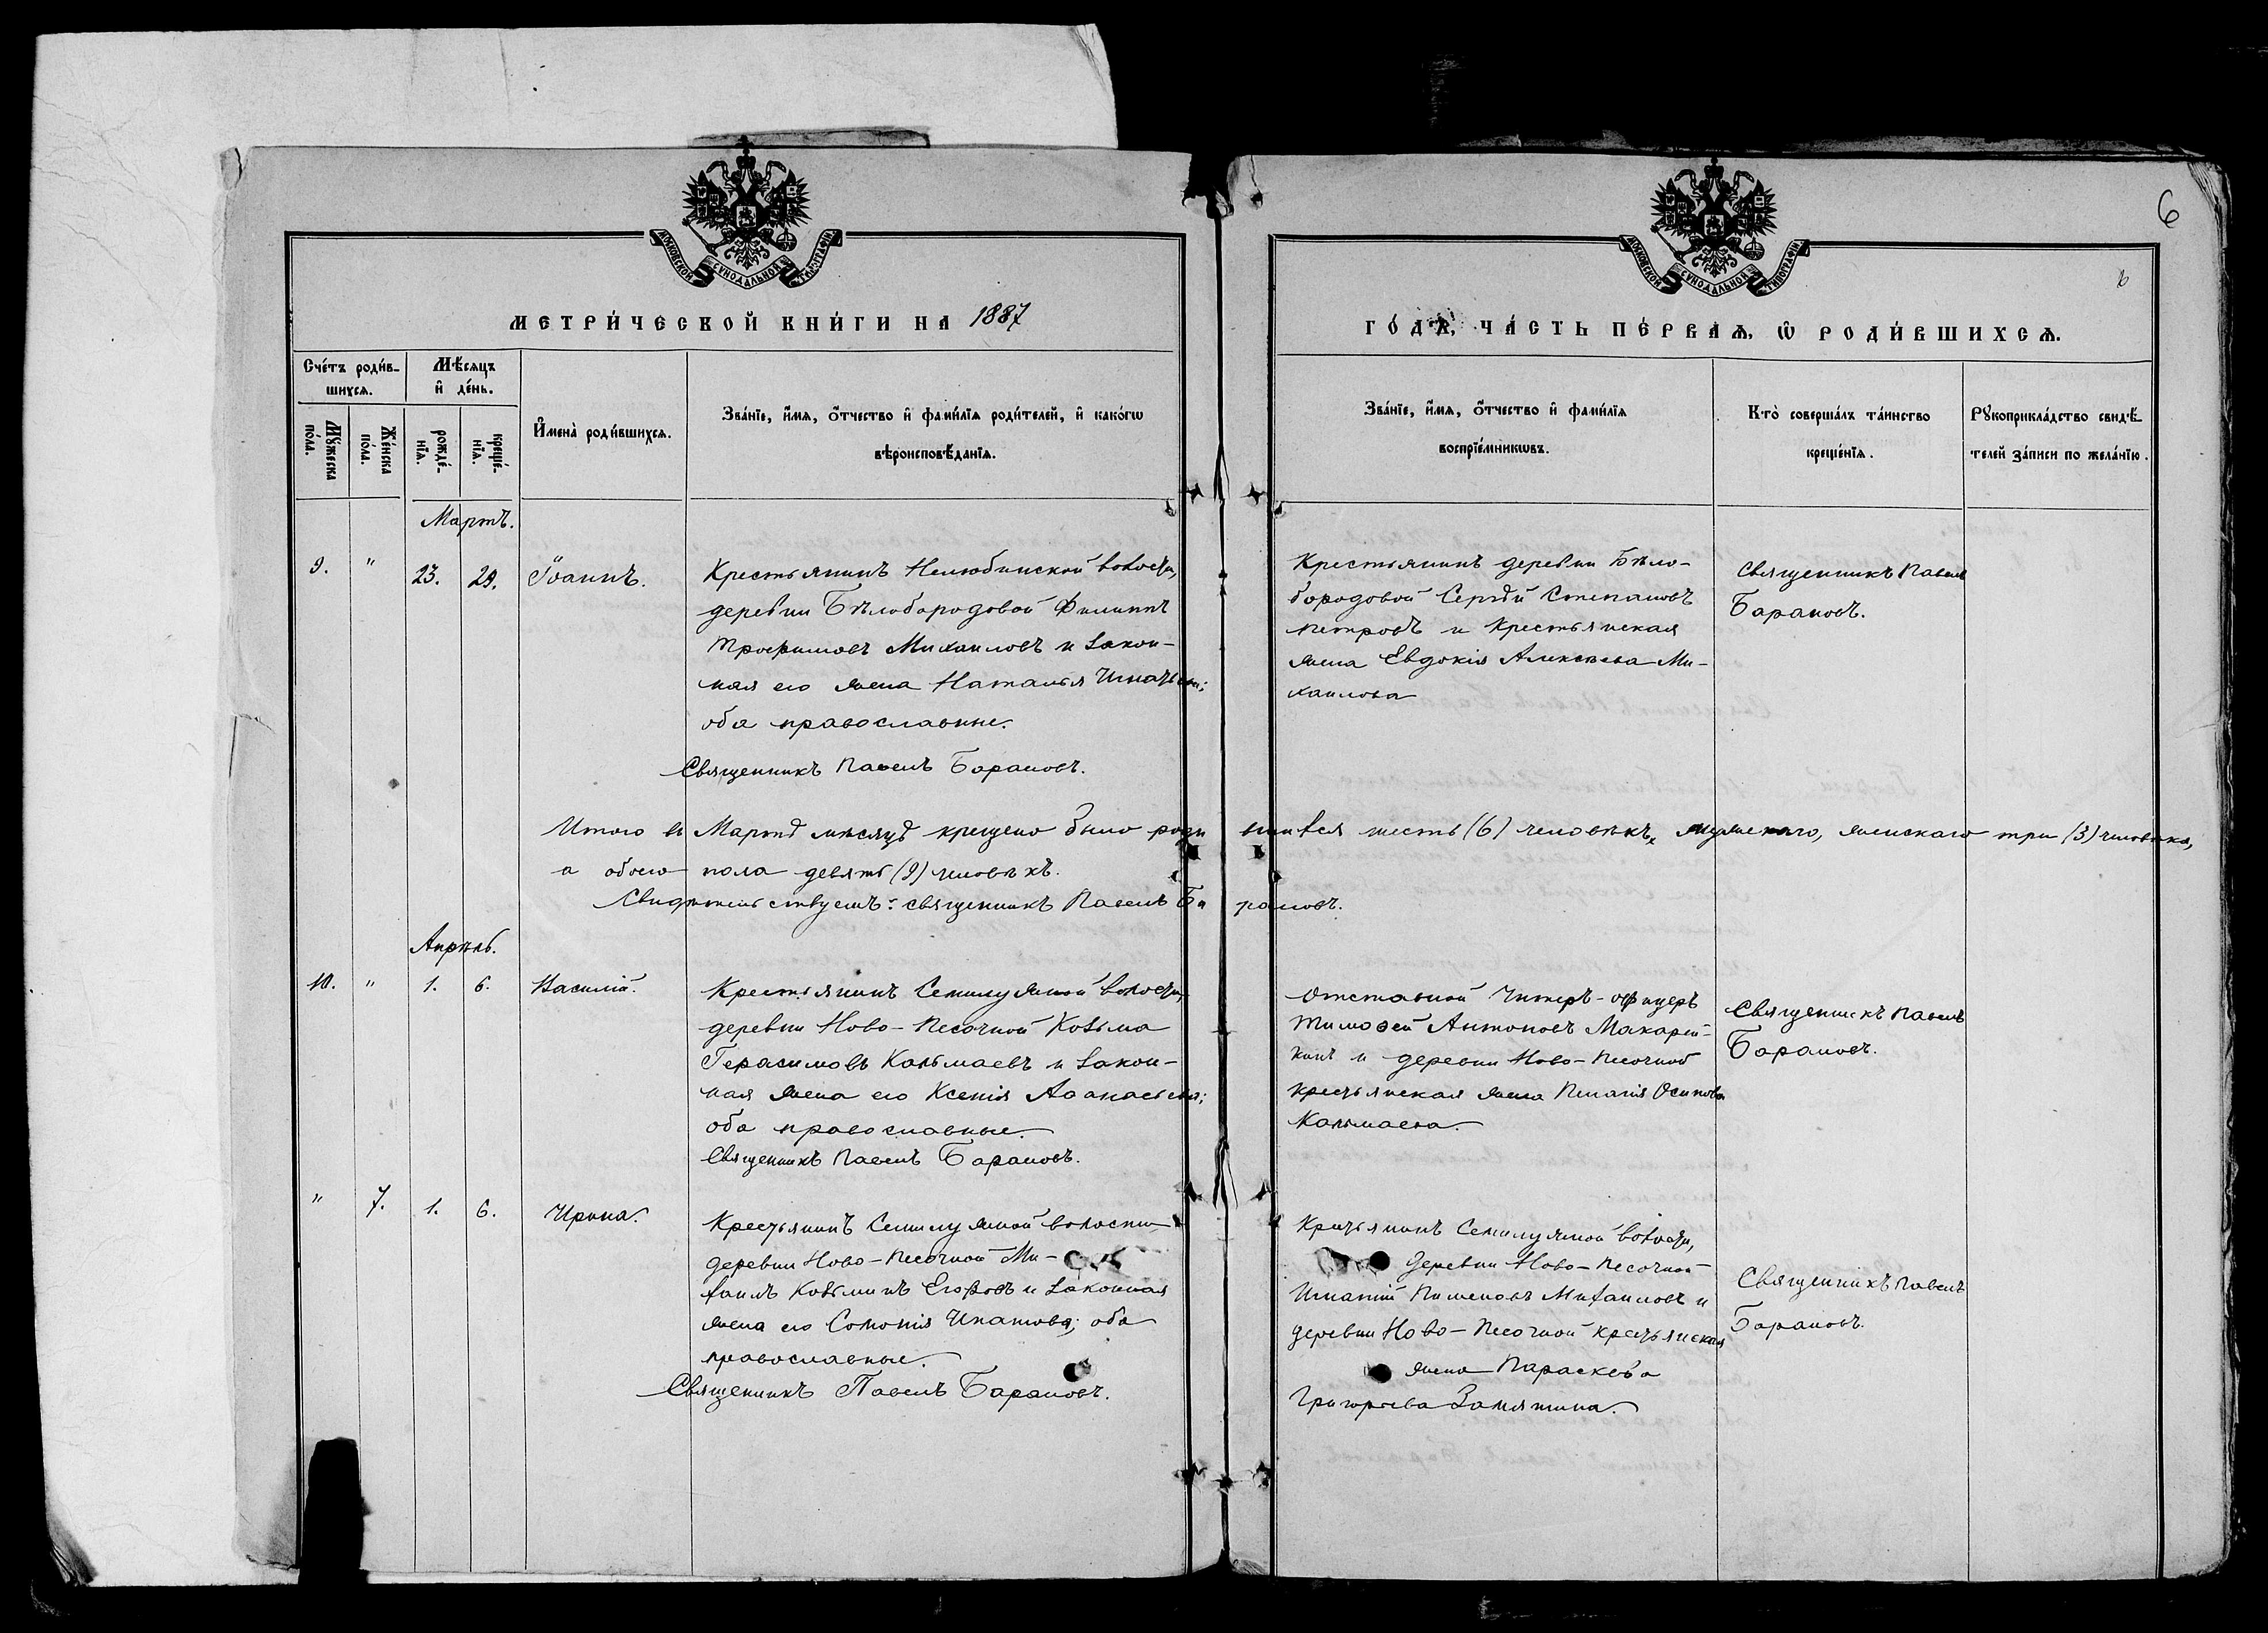 6
МОСКОВСКОЙ СУНОДАЛЬНОЙ ТИПОГРАФІИ
МОСКОВСКОЙ СУНОДАЛЬНОЙ ТИПОГРАФІИ
6
МЕТРИ́ЧЕСКОЙ КНИ́ГИ НА 1887
ГО́ДА, ЧА́СТЬ ПЕ́РВАѦ, Ѽ РОДИ́ВШИХСѦ.
Сче́тъ роди́в-
шихсѧ.
Мꙋ́жеска по́ла.
Же́нска по́ла.
Мѣ́сѧцъ
и҆ де́нь.
рожде́-нїѧ.
креще́-нїѧ.
И҆мена̀ роди́вшихсѧ.
Зва́нїе, и҆́мѧ, ѻ҆́тчество и҆ фами́лїѧ роди́телей, и҆ како́гѡ
вѣроисповѣ́данїѧ.
Зва́нїе, и҆́мѧ, ѻ҆́тчество и҆ фами́лїѧ
воспрїе́мникѡвъ.
Кто̀ соверша́лъ та́инство
креще́нїѧ.
Рꙋкоприкла́дство свидѣ́-
телей за́писи по жела́нїю.
Мартъ.
9. " 23. 29. Іоаннъ.
Крестьянинъ Нелюбинской волости,
деревни Бѣлобородовой Филиппъ
Трофимовъ Михаиловъ и закон-
ная его жена Наталья Игнатьева;
оба православные.
Священникъ Павелъ Барановъ.
Крестьянинъ деревни Бѣло-
бородовой Сергѣй Степановъ
Петровъ и крестьянская
жена Евдокія Алексѣева Ми-
хаилова
Священникъ Павелъ
Барановъ.
Итого въ Мартѣ мѣсяцѣ крещено было роди вшихся шесть (6) человѣкъ мужескаго, женскаго три (3) человѣка,
а обоего пола девять (9) человѣкъ.
Свидѣтельствуемъ: священникъ Павелъ Ба рановъ.
Апрѣль.
10. " 1. 6. Василій.
Крестьянинъ Семилужной волости,
деревни Ново-Песочной Козьма
Герасимовъ Кальмаевъ и закон-
ная жена его Ксенія Аѳанасьева;
оба православные.
Священникъ Павелъ Барановъ.
Отставной Унтеръ-офицеръ
Тимоѳей Антоновъ Макарей-
кинъ и деревни Ново-Песочной
крестьянская жена Пелагія Осипова
Кальмаева.
Священникъ Павелъ
Барановъ.
" 7. 1. 6. Ирина.
Крестьянинъ Семилужной волости
деревни Ново-Песочной Ми-
хаилъ Козьминъ Егоровъ и законная
жена его Соломія Ипатова; оба
православные.
Священникъ Павелъ Барановъ.
Крестьянинъ Семилужной волости,
деревни Ново-Песочной
Игнатій Пименовъ Михаиловъ и
деревни Ново-Песочной крестьянская
жена Параскева
Григорьева Замятина.
Священникъ Павелъ
Барановъ.